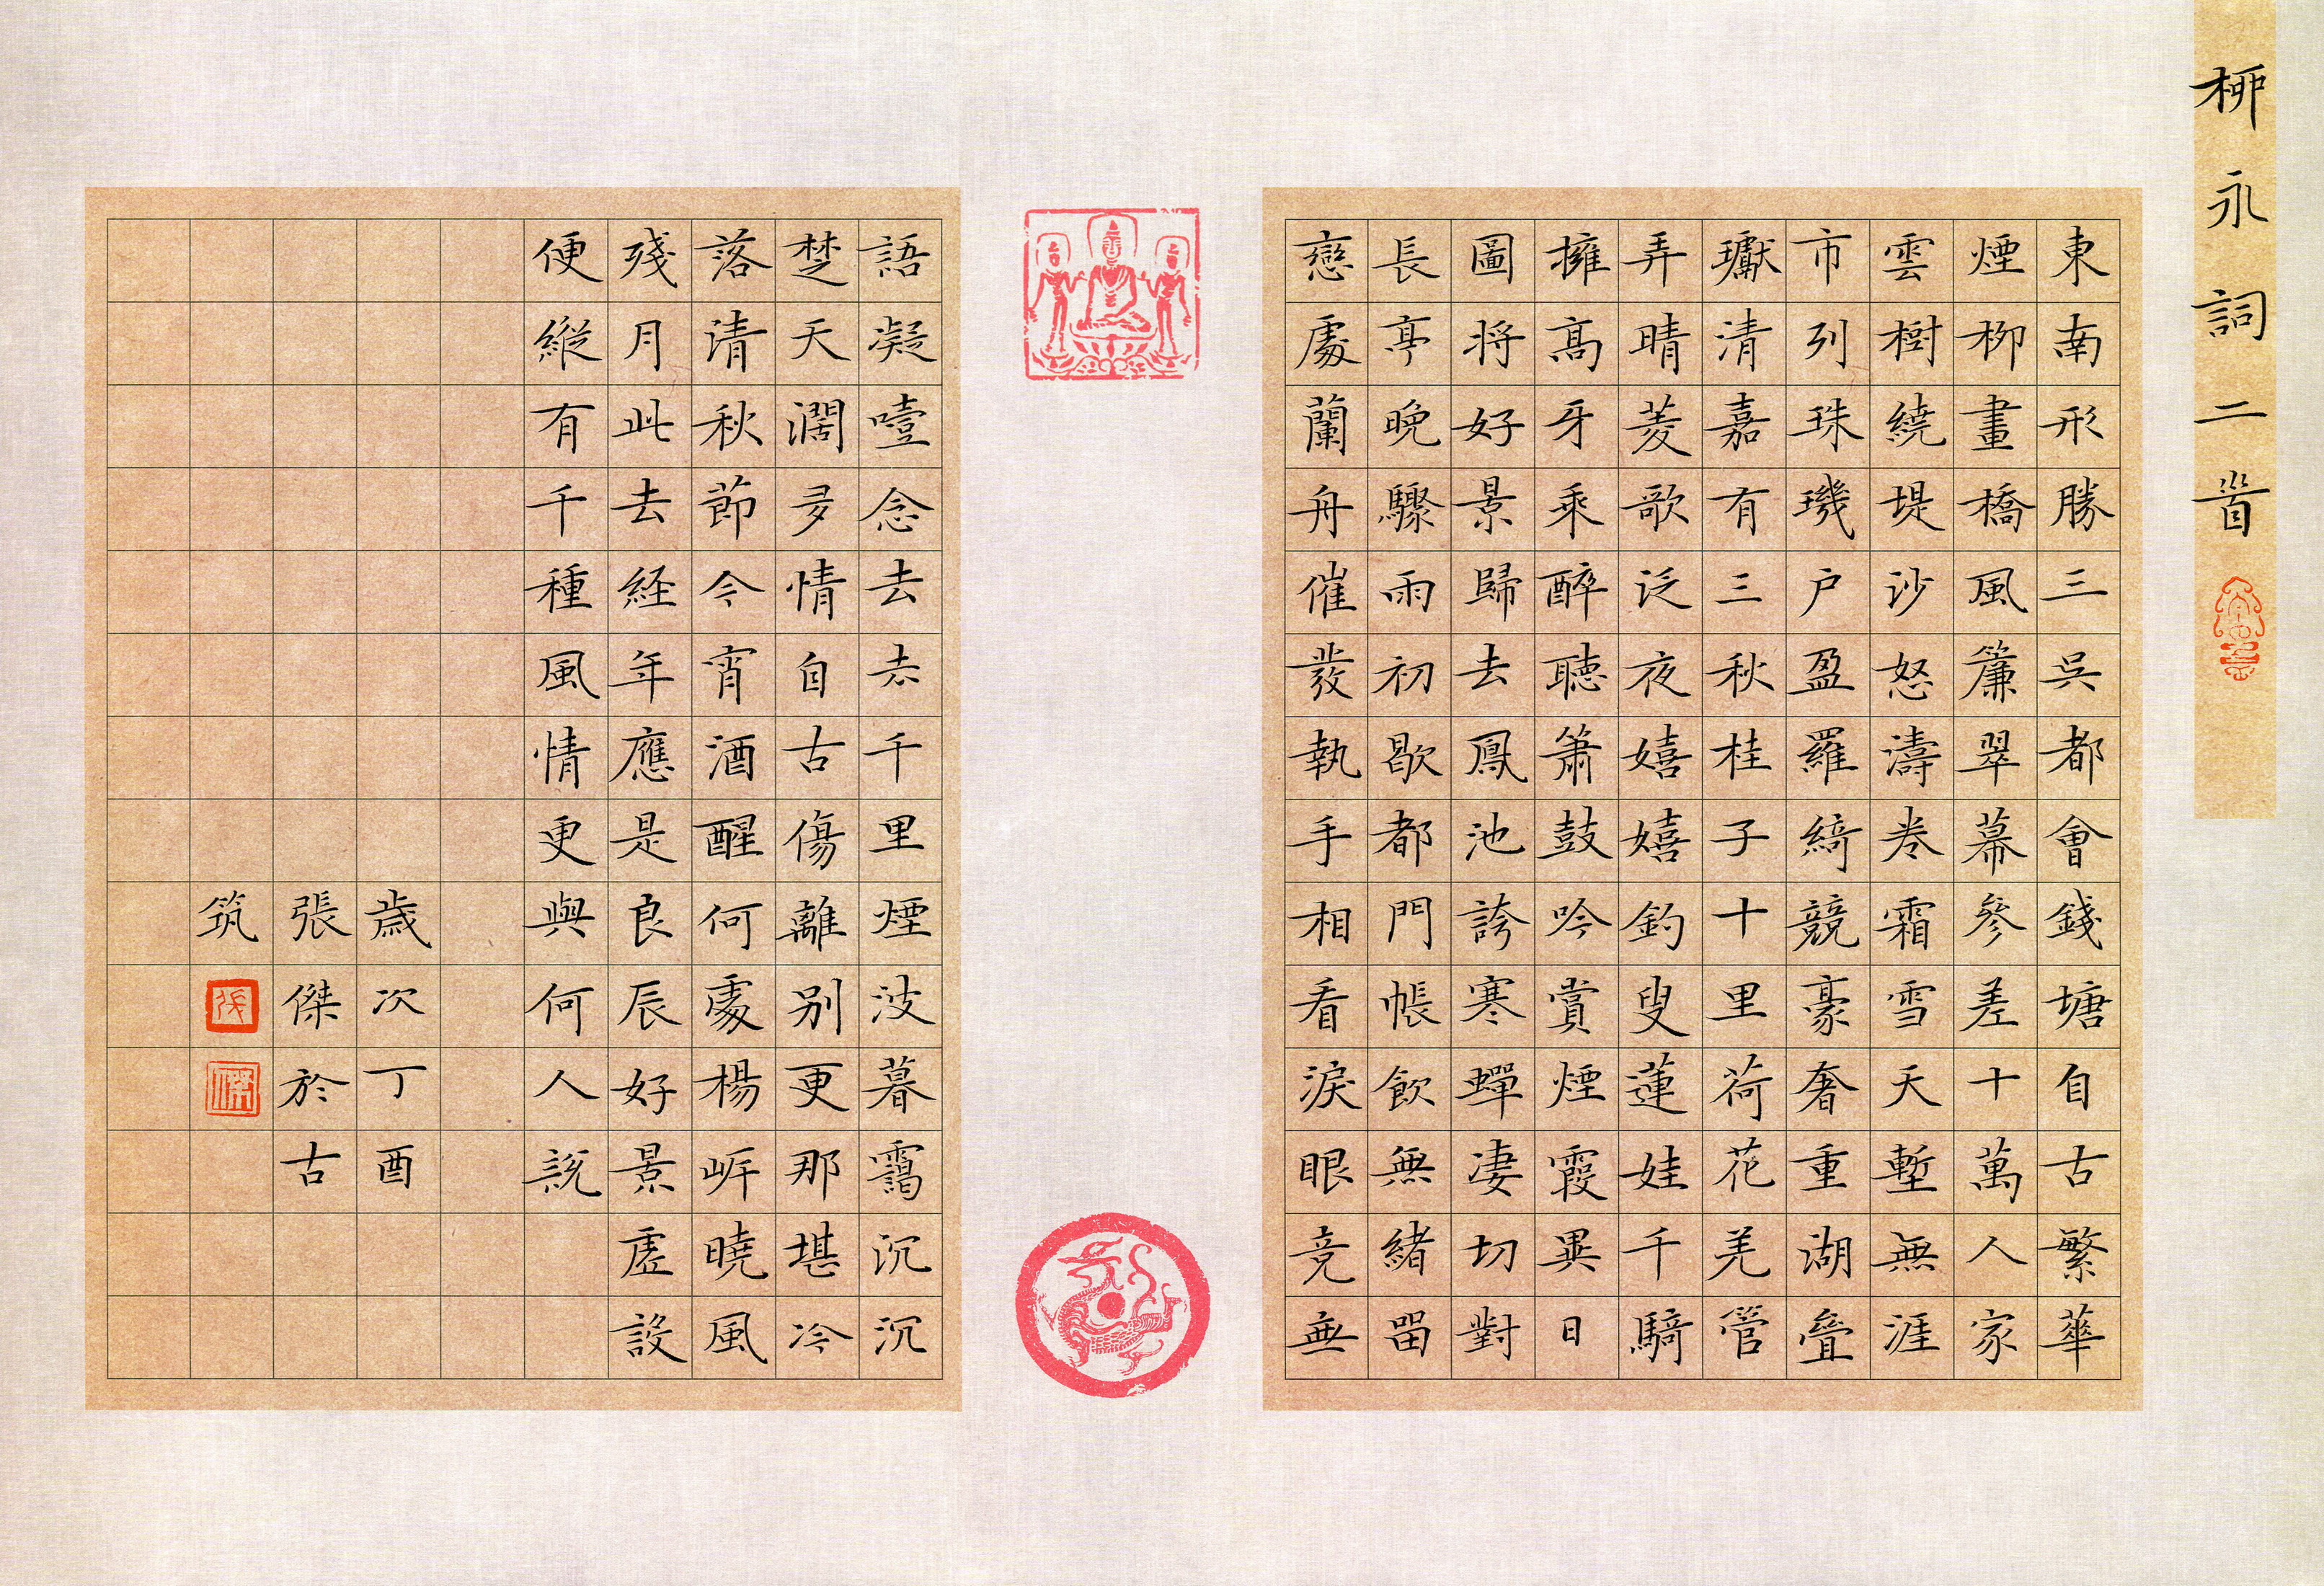 柳永詞二首
東南形勝三吳都會錢塘自古繁華
煙柳畫橋風簾翠幕參差十萬人家
雲樹繞堤沙怒濤卷霜雪天塹無涯
市列珠璣户盈羅綺競豪奢重湖疊
巘清嘉有三秋桂子十里荷花羌管
弄晴菱歌泛夜嬉嬉釣叟蓮娃千騎
擁高牙乘醉聽簫鼓吟賞煙霞異日
圖將好景歸去鳳池誇寒蟬淒切對
長亭晚驟雨初歇都門帳飲無緒留
戀處蘭舟催發執手相看淚眼竞無
語凝噎念去去千里煙波暮靄沉沉
楚天濶多情自古傷離别更那堪冷
落清秋節今宵酒醒何處楊岸曉風
殘月此去経年應是良辰好景虛設
便縱有千種風情更與何人説
歲次丁酉
張傑於古
筑